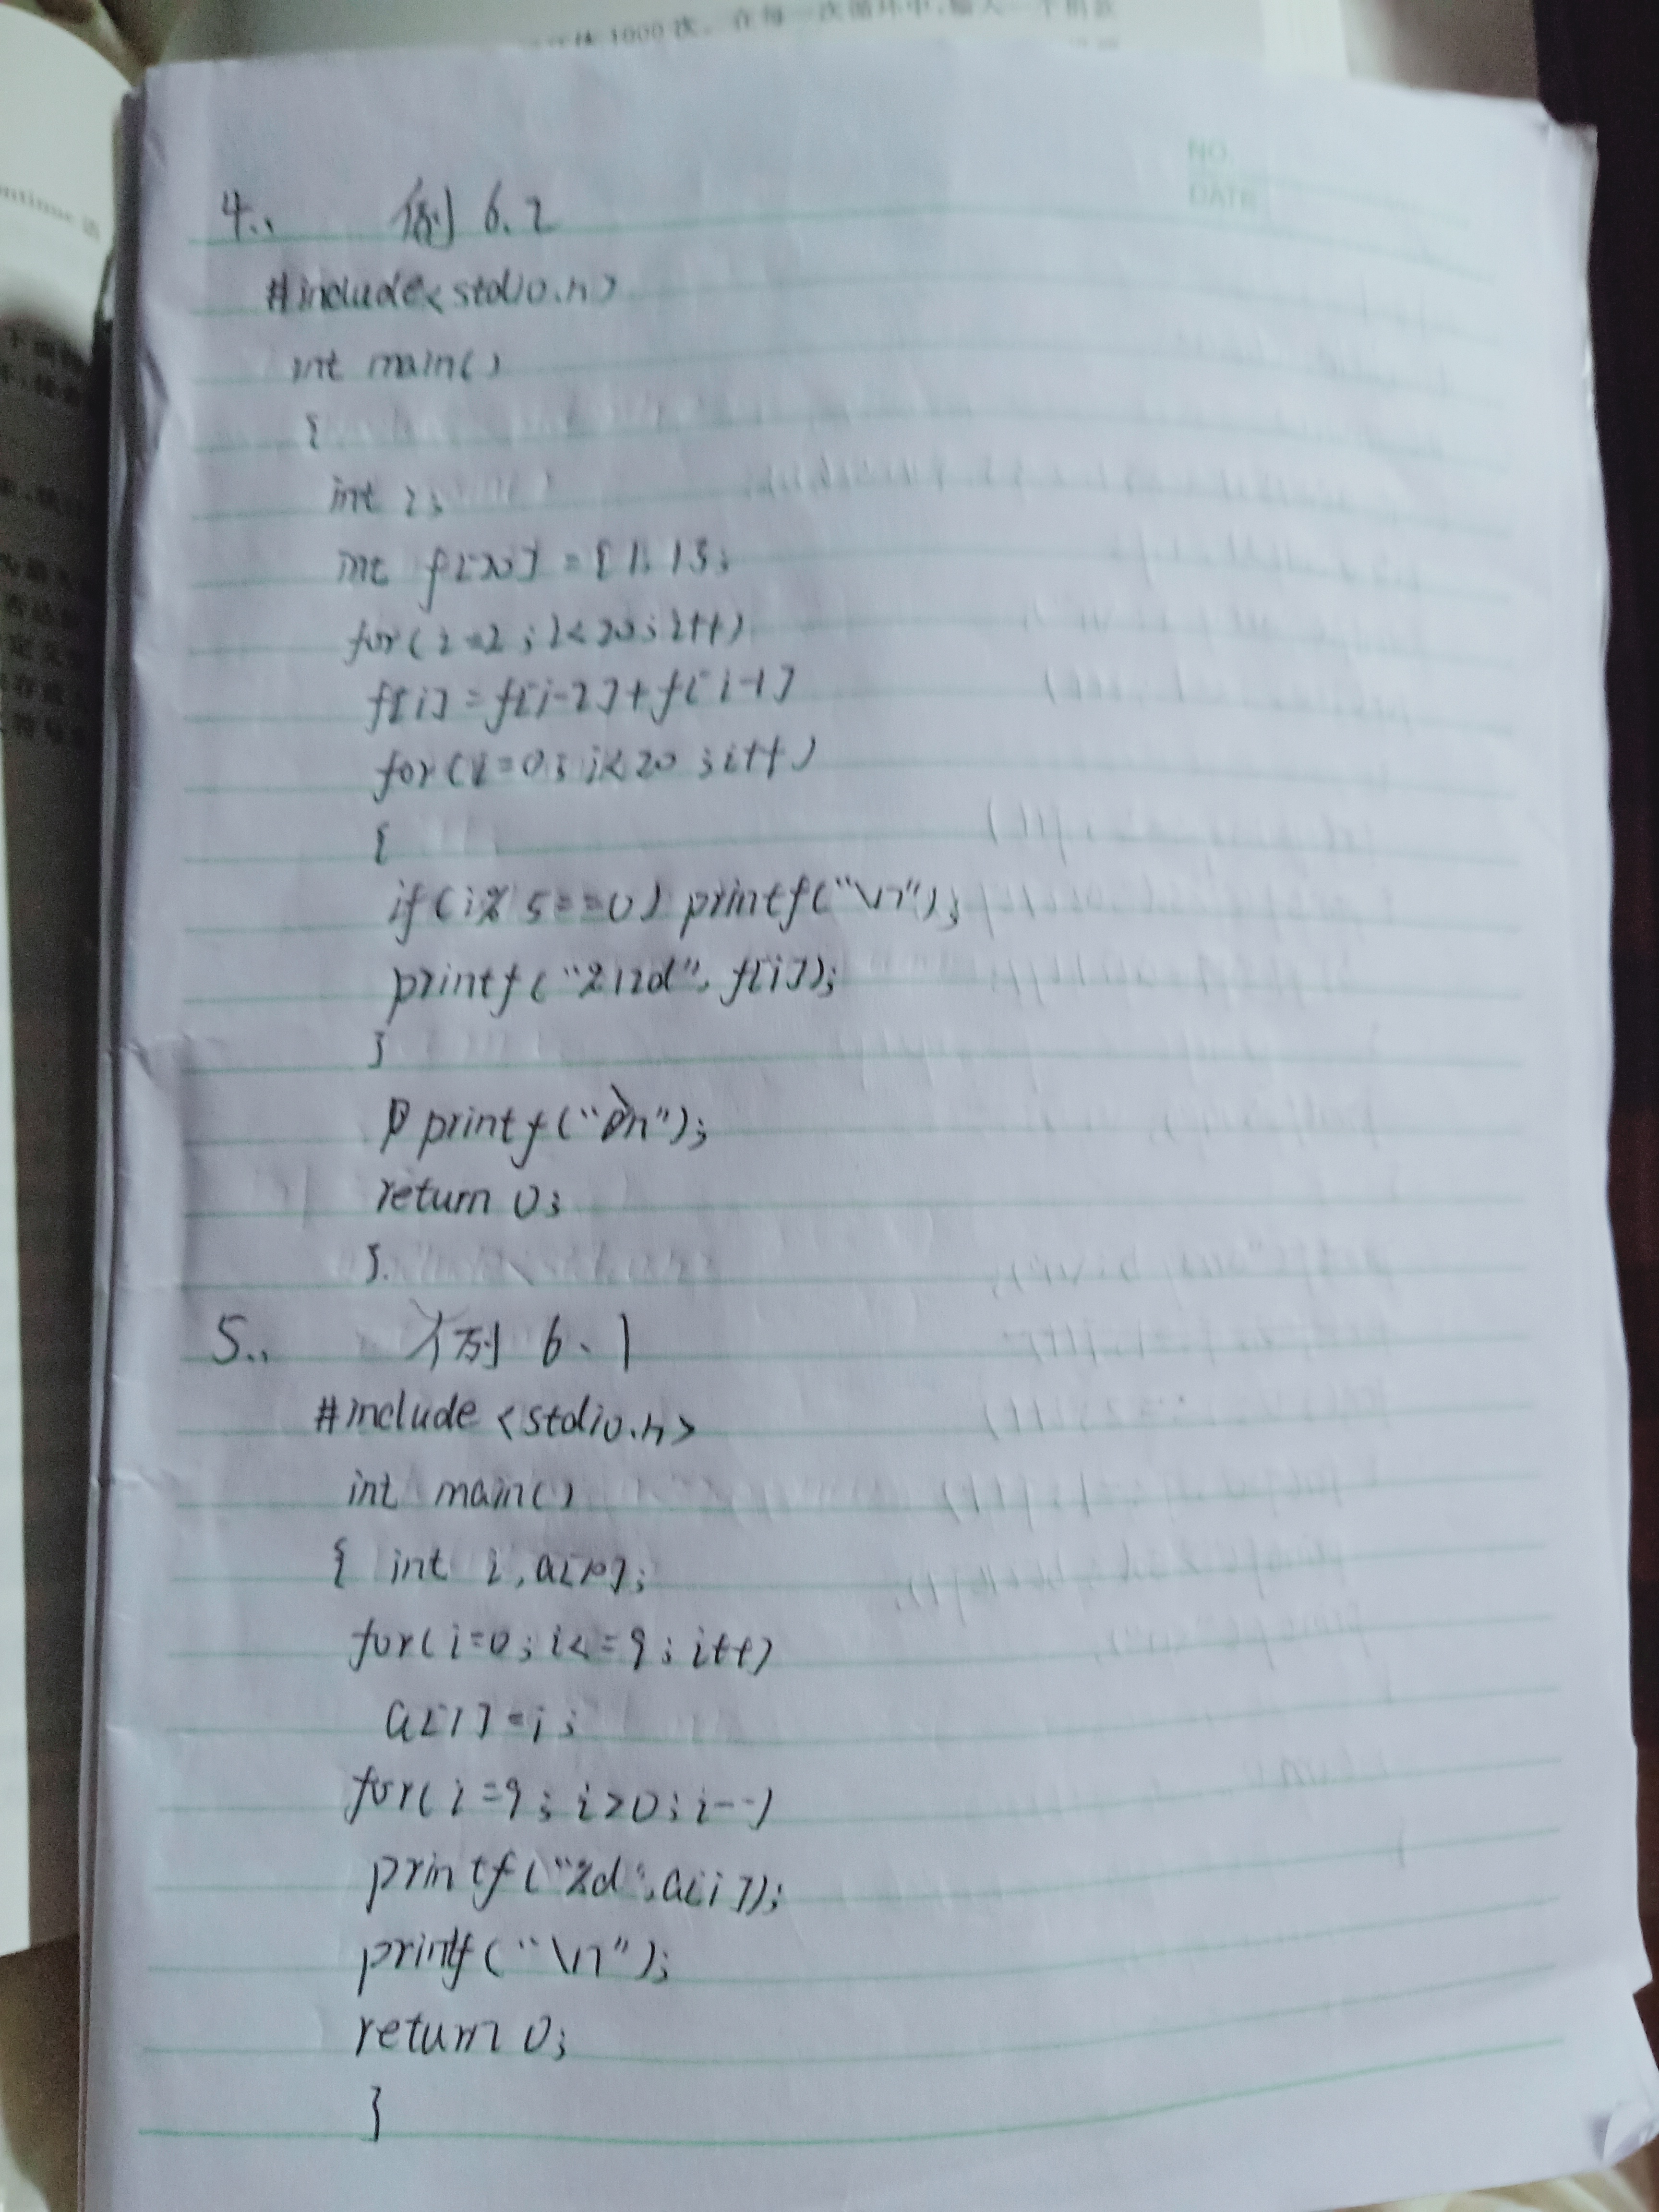 体1000次。在每一次循环中,输入一个捐款
NO.
DATE
ontinue 语
4.. 例 6.2
#include<stdio.h>
int main()
{
int i;
int f[20]={1,1};
for(i=2;i<20;i++)
f[i]=f[i-2]+f[i-1]
for(i=0;i<20;i++)
{
if(i%5==0) printf("\n");
printf("%12d",f[i]);
}
printf("\n");
return 0;
}.
5.. 例 6.1
#include<stdio.h>
int main()
{ int i,a[10];
for(i=0;i<=9;i++)
a[i]=i;
for(i=9;i>0;i--)
printf("%d",a[i]);
printf("\n");
return 0;
}